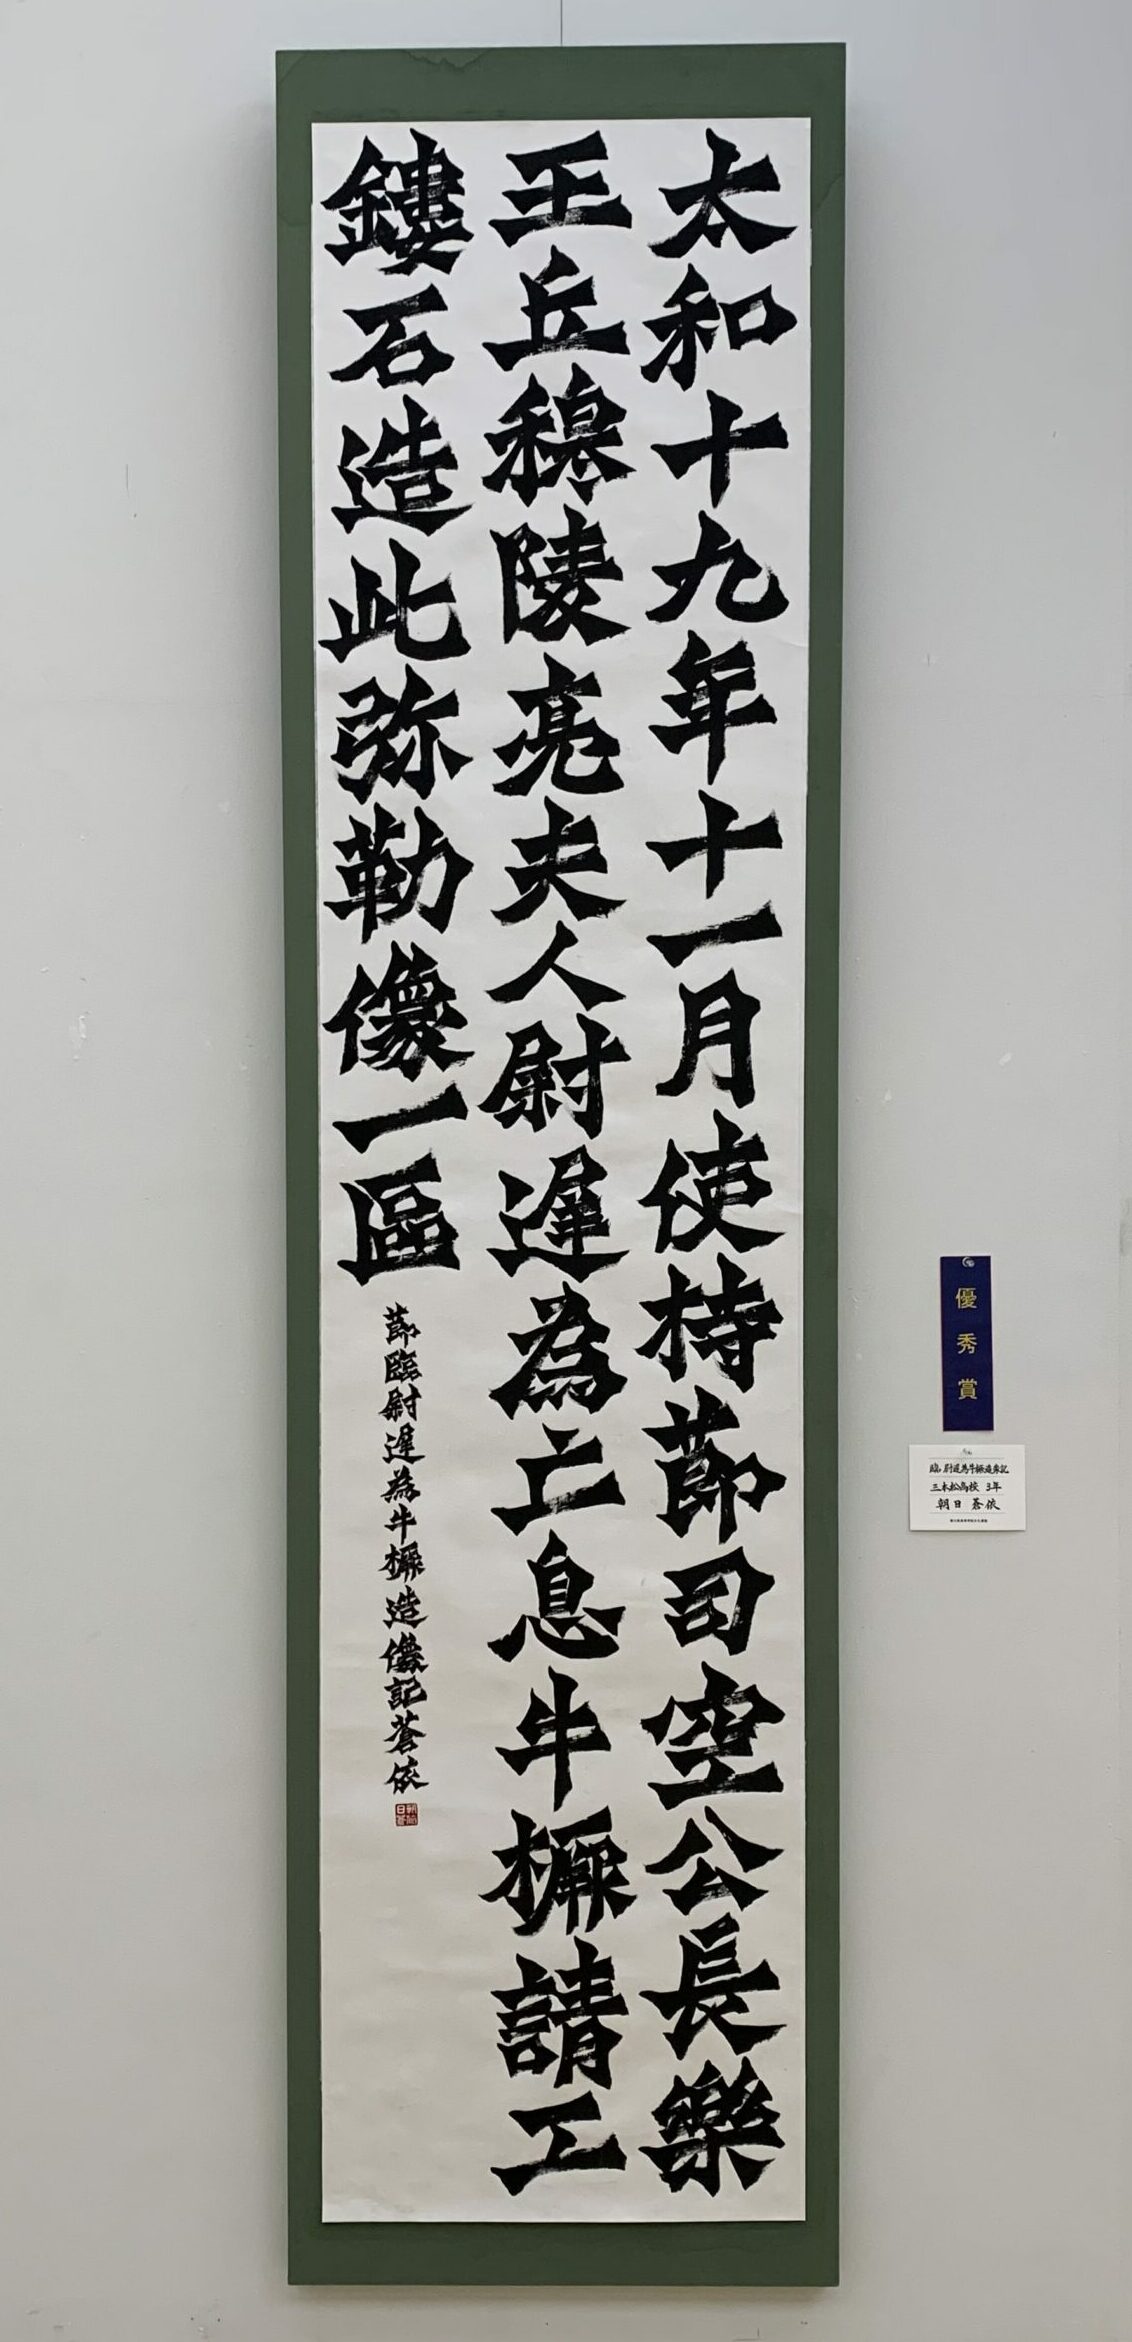 太和十九年十一月使持節司空公長樂
王丘穆陵亮夫人尉遲為亡息牛橛請工
鏤石造此弥勒像一區
節臨尉遲為牛橛造像記蒼依
優秀賞
臨 尉遅為牛橛造像記
三本松高校 3年
朝日 蒼依